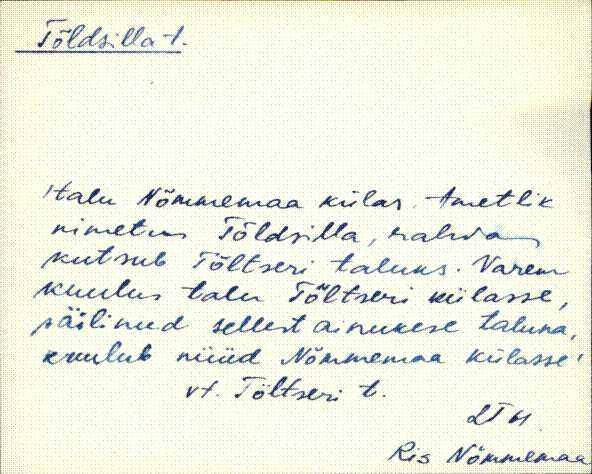 Tõldsilla t.
'talu Nõmmemaa külas. Ametlik
nimetus Tõldsilla, rahvas
kutsub Tõltseri taluks. Varem
kuulus talu Tõltseri külasse,
säilinud sellest ainukese taluna,
kuulub nüüd Nõmmemaa külasse'
vt. Tõltseri t.
Ris Nõmmemaa